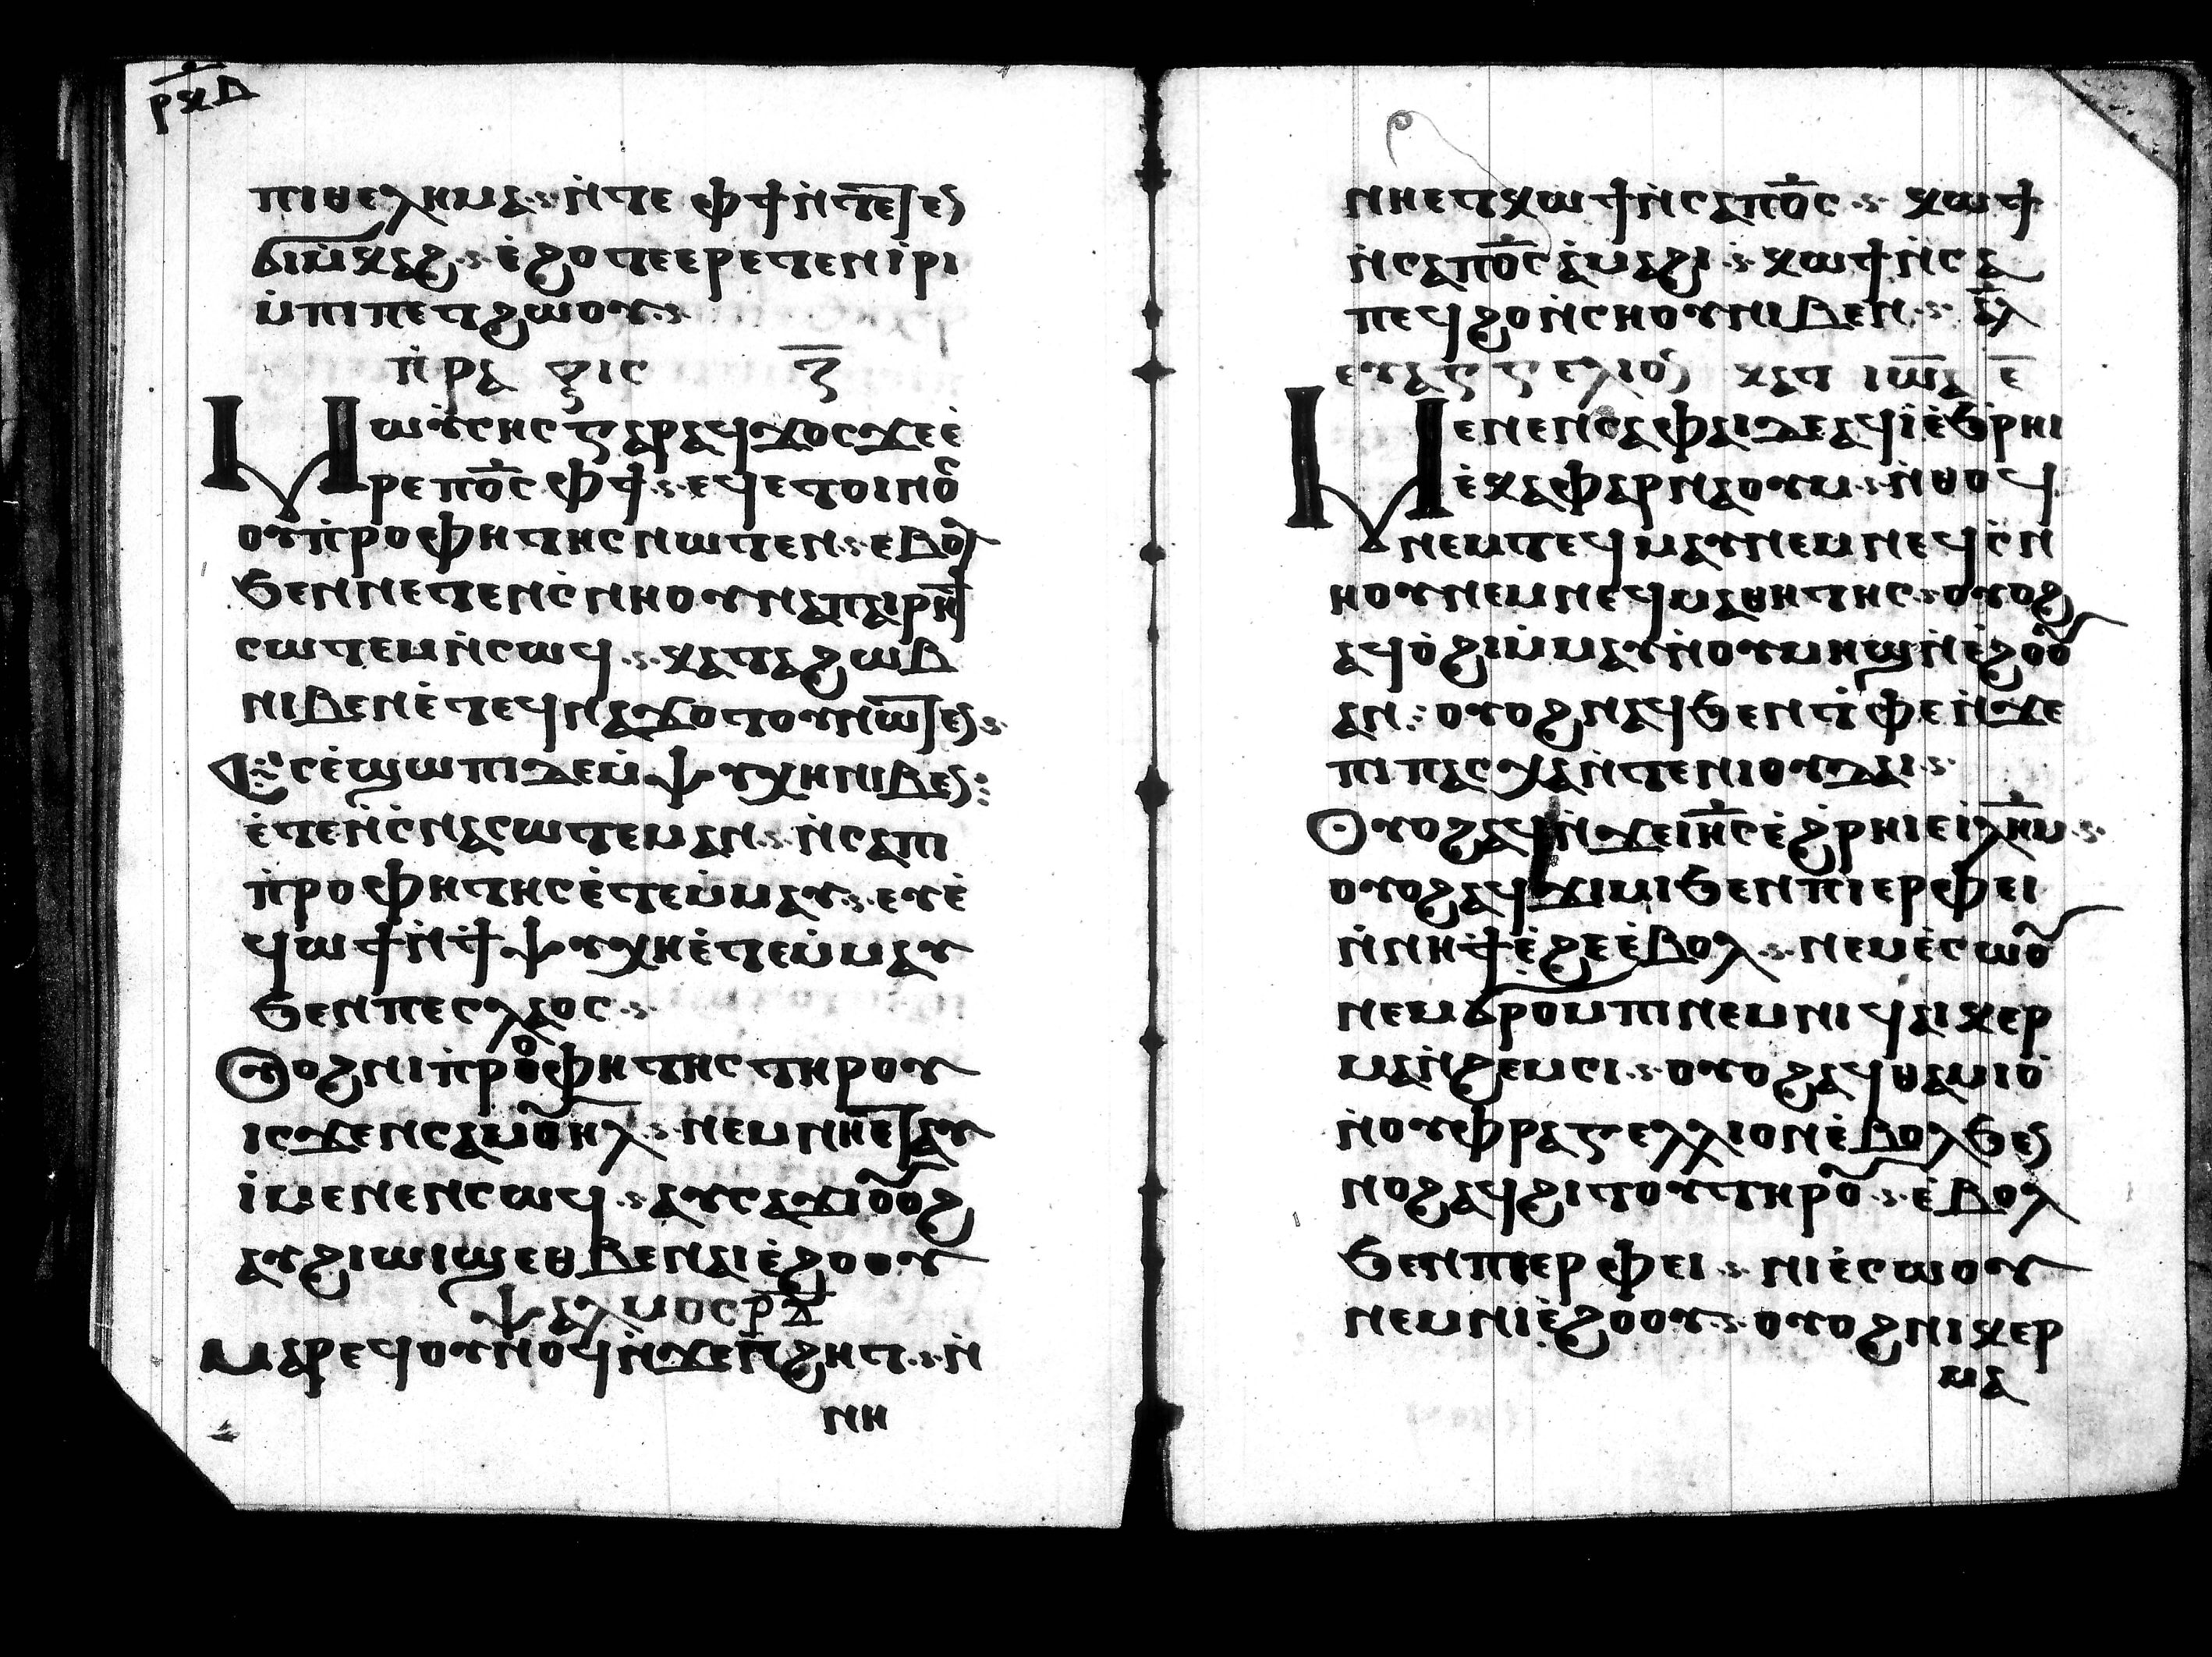 ⲣⲝⲇ
ⲡⲓⲑⲉⲗⲏⲙⲁ ⲛ̀ⲧⲉ ⲫϯ ⲛ̀ⲧⲉⲧⲉⲛ
ϭⲓⲙ̀ⲕⲁϩ ⲉ̀ϩⲟⲧⲉ ⲉⲣⲉⲧⲉⲛⲓ̀ⲣⲓ
ⲙ̀ⲡⲓⲡⲉⲧϩⲱⲟⲩ
ⲡ̀ⲣⲁⲝⲓⲥ ⲍ̅
Ⲙⲱⲩⲥⲏⲥ ⲅⲁⲣ ⲁϥϫⲟⲥ ϫⲉ ⲉ̀
ⲣⲉ ⲡⲟ̅ⲥ̅ ⲫϯ ⲉϥⲉⲧⲟⲩⲛⲟ
ⲟⲩⲡ̀ⲣⲟⲫⲏⲧⲏⲥ ⲛⲱⲧⲉⲛ ⲉⲃⲟⲗ
ϧⲉⲛ ⲛⲉⲧⲉⲛⲥ̀ⲛⲏⲟⲩ ⲛⲁⲡⲁⲓⲣⲏϯ
ⲥⲱⲧⲉⲙ ⲛ̀ⲥⲱϥ ⲕⲁⲧⲁ ϩⲱⲃ
ⲛⲓⲃⲉⲛ ⲉ̀ⲧⲉϥⲛⲁϫⲟⲧⲟⲩ ⲛⲱⲧⲉⲛ
Ⲉⲥⲉ̀ϣⲱⲡⲓ ⲇⲉ ⲙ̀ⲯⲩⲭⲏ ⲛⲓⲃⲉⲛ
ⲉ̀ⲧⲉⲛ̀ⲥ̀ⲛⲁⲥⲱⲧⲉⲙ ⲁⲛ ⲛ̀ⲥⲁ ⲡⲓ
ⲡ̀ⲣⲟⲫⲏⲧⲏⲥ ⲉ̀ⲧⲉⲙ̀ⲙⲁⲩ ⲉⲩⲉ̀
ϥⲱϯ ⲛ̀ϯⲯⲩⲭⲏ ⲉ̀ⲧⲉⲙ̀ⲙⲁⲩ
ϧⲉⲛ ⲡⲉⲥⲗⲁⲟⲥ
Ⲟⲩⲟϩ ⲛⲓⲡ̀ⲣⲟⲫⲏⲧⲏⲥ ⲧⲏⲣⲟⲩ
ⲓⲥϫⲉⲛ ⲥⲁⲙⲟⲩⲏⲗ ⲛⲉⲙ ⲛⲏⲉⲧⲁⲩ
ⲓ̀ ⲙⲉⲛⲉⲛⲥⲱϥ ⲁⲩⲥⲁϫⲓ ⲟⲩⲟϩ
ⲁⲩϩⲓⲱⲓϣ ⲉⲑⲃⲉ ⲛⲁⲓⲉ̀ϩⲟⲟⲩ
ⲯⲁⲗⲙⲟⲥ ⲣ̅ⲇ̅
Ⲙⲁⲣⲉϥⲟⲩⲛⲟϥ ⲛ̀ϫⲉ ⲡϩⲏⲧ ⲛ̀
ⲛⲏ
ⲛⲏⲉⲧⲕⲱϯ ⲛ̀ⲥⲁ ⲡⲟ̅ⲥ̅ ⲕⲱϯ
ⲛ̀ⲥⲁ ⲡⲟ̅ⲥ̅ ⲁ̀ⲙⲁϩⲓ ⲕⲱϯ ⲛ̀ⲥⲁ
ⲡⲉϥϩⲟ ⲛ̀ⲥⲏⲟⲩ ⲛⲓⲃⲉⲛ ⲁ̅ⲗ̅
ⲉⲩⲁⲅⲅⲉⲗⲓⲟⲛ ⲕⲁⲧ ⲓⲱⲁ ⲉ̅
Ⲙⲉⲛⲉⲛⲥⲁ ⲫⲁⲓ ⲇⲉ ⲁϥⲓ̀ ⲉ̀ϧⲣⲏⲓ
ⲉ̀ⲕⲁⲫⲁⲣⲛⲁⲟⲩⲙ ⲛ̀ⲑⲟϥ
ⲛⲉⲙ ⲧⲉϥⲙⲁⲩ ⲛⲉⲙ ⲛⲉϥⲥ̀ⲛ
ⲏⲟⲩ ⲛⲉⲙ ⲛⲉϥⲙⲁⲑⲏⲧⲏⲥ ⲟⲩⲟϩ
ⲁϥⲟ̀ϩⲓ ⲙ̀ⲙⲁⲩ ⲛ̀ⲟⲩⲙⲏϣ ⲛ̀ⲉ̀ϩⲟⲟⲩ
ⲁⲛ ⲟⲩⲟϩ ⲛⲁϥϧⲉⲛⲧ ⲡⲉ ⲛ̀ϫⲉ
ⲡⲓⲡⲁⲥⲭⲁ ⲛ̀ⲧⲉ ⲛⲓⲟⲩⲇⲁⲓ
Ⲟⲩⲟϩ ⲁϥⲓ̀ ⲛ̀ϫⲉ ⲓⲏ̅ⲥ̅ ⲉ̀ϩⲣⲏⲓ ⲉⲓ̀ⲗⲏ̅ⲙ̅
ⲟⲩⲟϩ ⲁϥϫⲓⲙⲓ ϧⲉⲛ ⲡⲓⲉⲣⲫⲉⲓ
ⲛ̀ⲛⲏ ϯⲉ̀ϩⲉ ⲉ̀ⲃⲟⲗ ⲛⲉⲙ ⲉ̀ⲥⲱⲟⲩ
ⲛⲉⲙ ϭⲣⲟⲙⲡⲓ ⲛⲉⲙ ⲛⲓϥⲁⲓⲕⲉⲣ
ⲙⲁ ⲛ̀ϩⲉⲙⲥⲓ ⲟⲩⲟϩ ⲁϥⲑⲁⲙⲓⲟ̀
ⲛ̀ⲟⲩⲫⲣⲁⲅⲉⲗⲗⲓⲟⲛ ⲉ̀ⲃⲟⲗ ϧⲉⲛ
ⲛⲟϩ ⲁϥϩⲓⲧⲟⲩ ⲧⲏⲣⲟⲩ ⲉ̀ⲃⲟⲗ
ϧⲉⲛ ⲡⲓⲉⲣⲫⲉⲓ ⲛⲓⲉ̀ⲥⲱⲟⲩ
ⲛⲉⲙ ⲛⲓⲉ̀ϩⲟⲟⲩ ⲟⲩⲟϩ ⲛⲓⲕⲉⲣ
ⲙⲁ